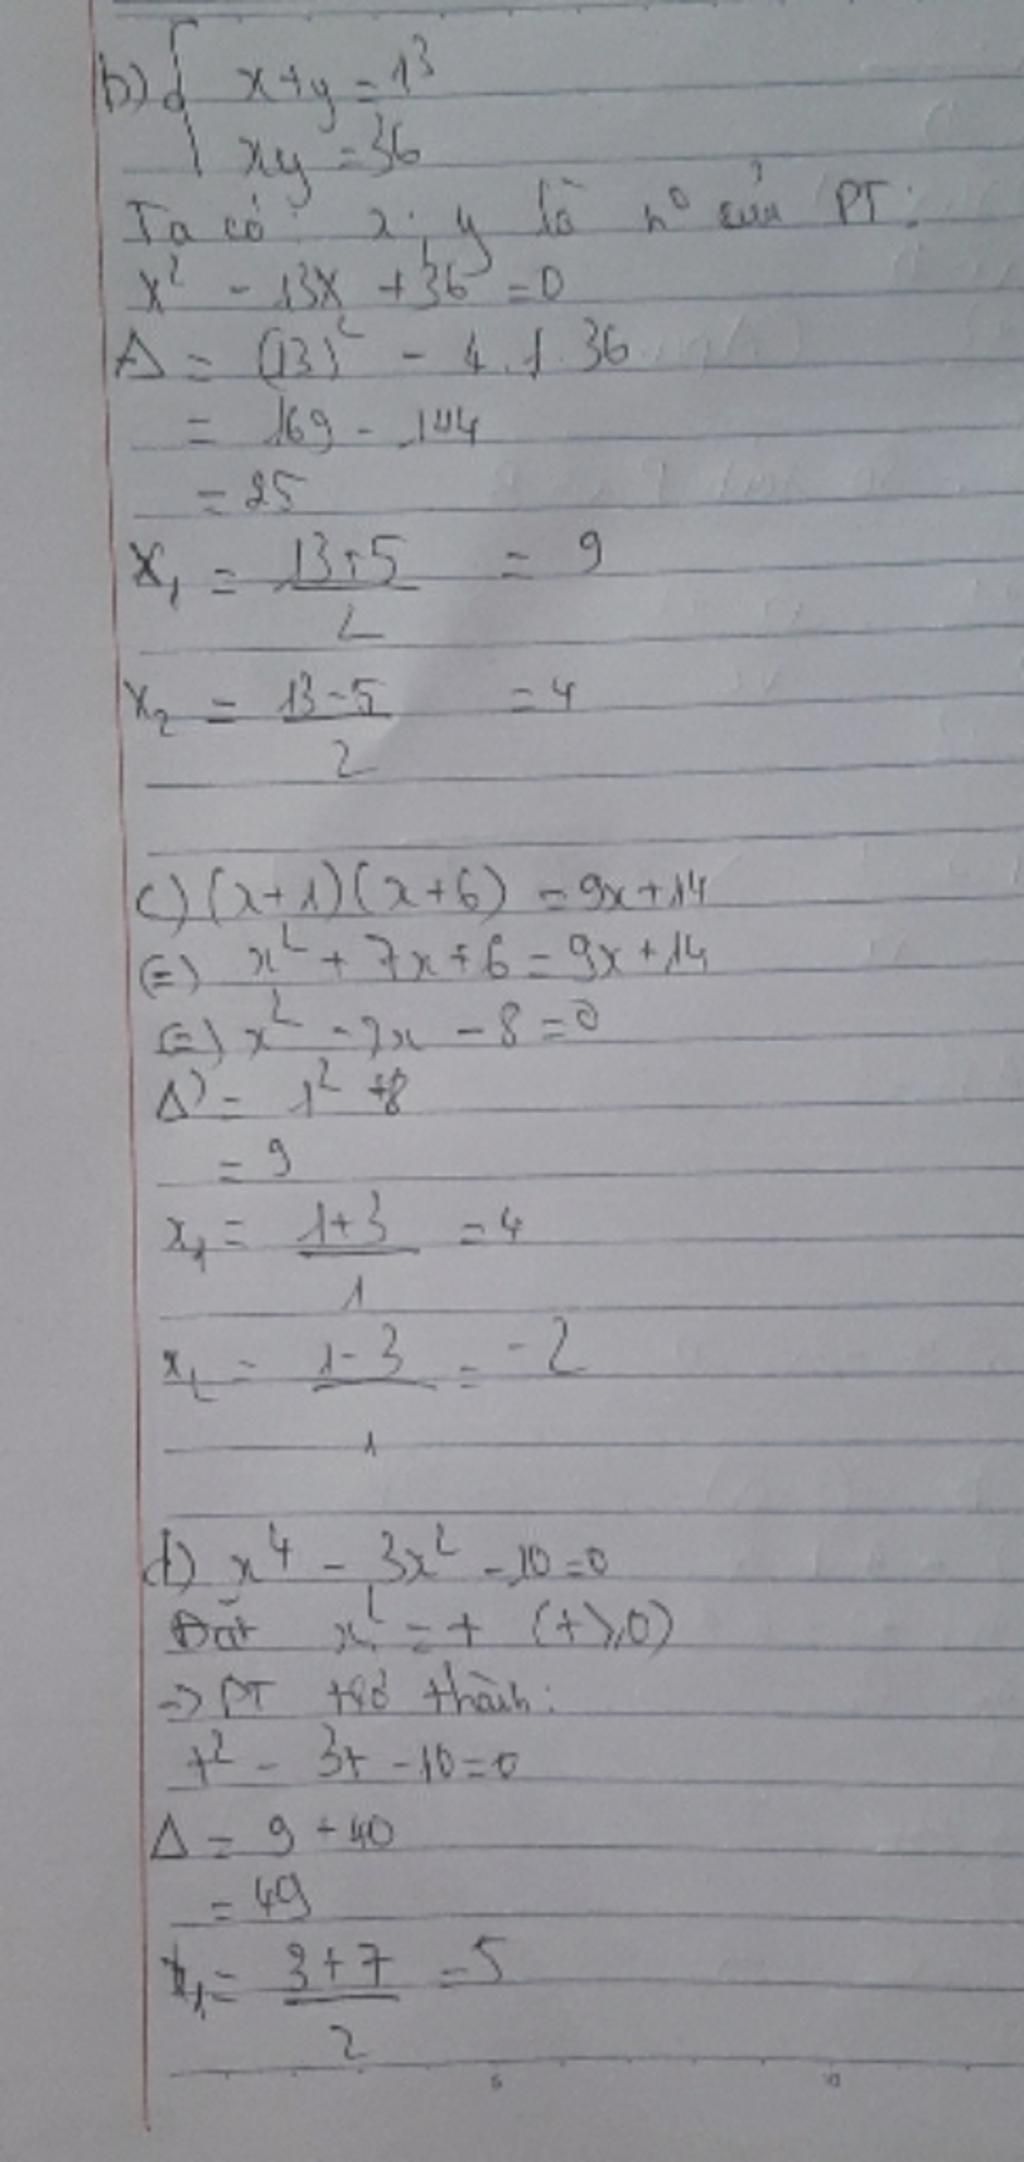 b) { x+y=13
xy=36
Ta có: x; y là n⁰ của PT:
X² - 13X + 36 = 0
Δ = (13)² - 4.1.36
= 169 - 144
= 25
X₁ = (13+5)/2 = 9
X₂ = (13-5)/2 = 4
c) (x+1)(x+6) = 9x+14
(=) x² + 7x + 6 = 9x+14
(=) x² - 2x - 8 = 0
Δ' = 1² + 8
= 9
x₁ = (1+3)/1 = 4
x₂ = (1-3)/1 = -2
d) x⁴ - 3x² - 10 = 0
Đặt x² = t (t ≥ 0)
=> PT trở thành:
t² - 3t - 10 = 0
Δ = 9 + 40
= 49
t₁ = (3+7)/2 = 5
5 10